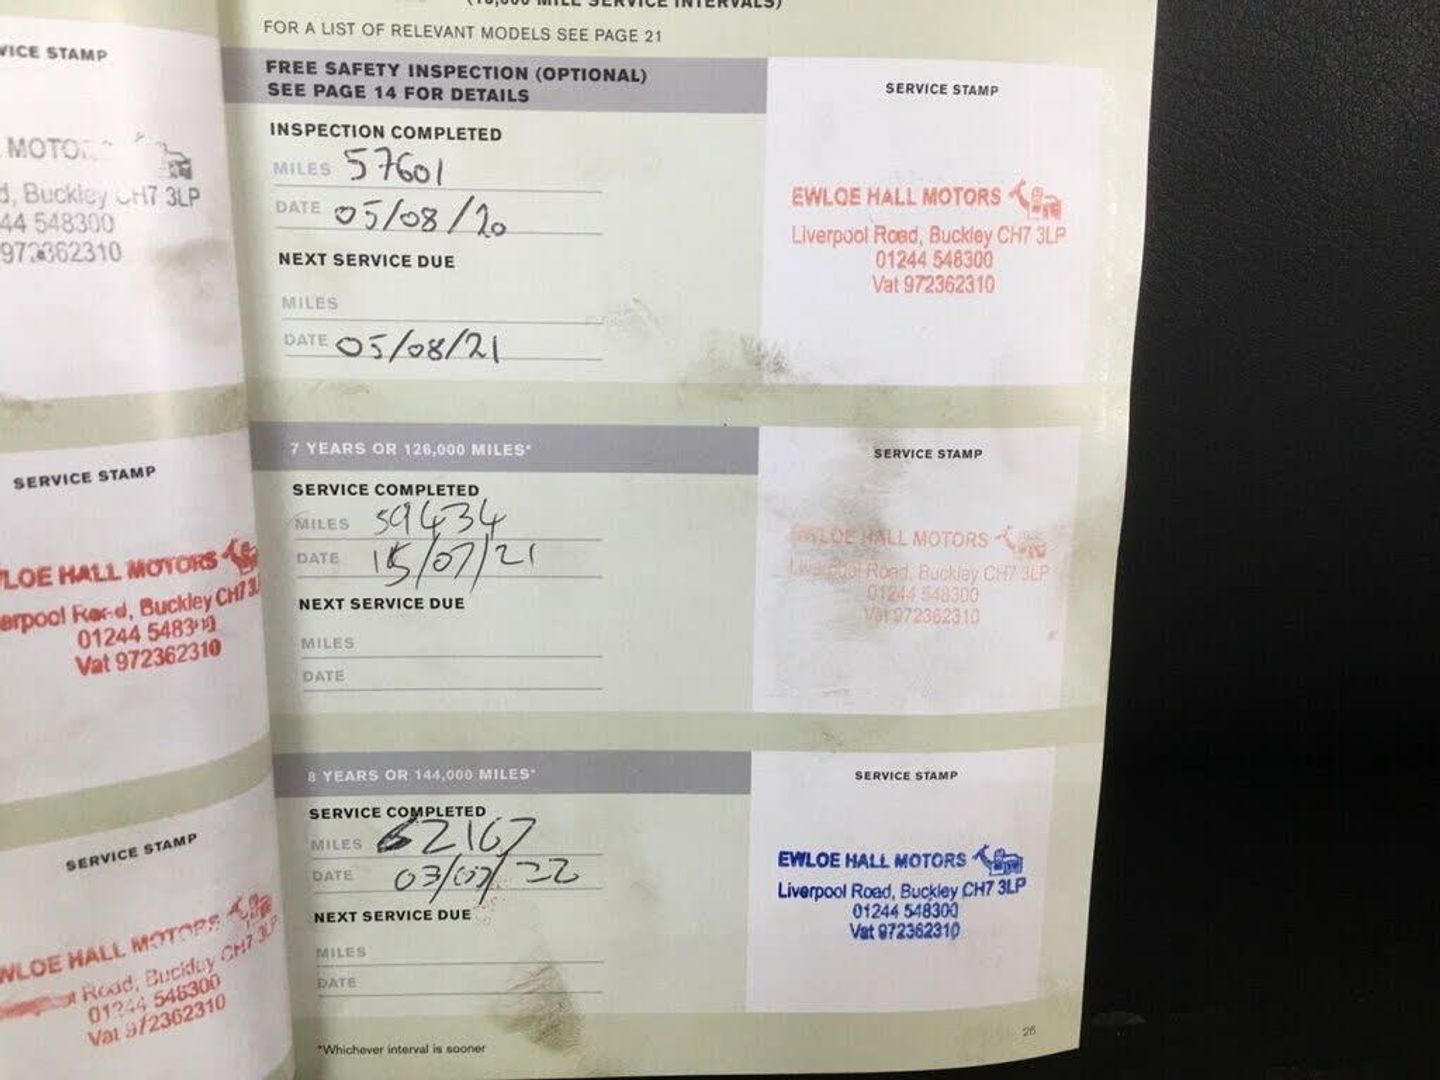 (18,000 MILE SERVICE INTERVALS)
FOR A LIST OF RELEVANT MODELS SEE PAGE 21
VICE STAMP
MOTO
d, Buckley CH7 3LP
44 548300
972362310
SERVICE STAMP
LOE HALL MOTORS
erpool Road, Buckley CH7 3L
01244 548300
Vat 972362310
SERVICE STAMP
WLOE HALL MOTORS
Road, Buckley CH7 3LP
01244 548300
Vat 972362310
FREE SAFETY INSPECTION (OPTIONAL)
SEE PAGE 14 FOR DETAILS
INSPECTION COMPLETED
MILES 57601
DATE 05/08/20
NEXT SERVICE DUE
MILES
DATE 05/08/21
SERVICE STAMP
EWLOE HALL MOTORS
Liverpool Road, Buckley CH7 3LP
01244 548300
Vat 972362310
7 YEARS OR 126,000 MILES*
SERVICE COMPLETED
MILES 59434
DATE 15/07/21
NEXT SERVICE DUE
MILES
DATE
SERVICE STAMP
EWLOE HALL MOTORS
Liverpool Road, Buckley CH7 3LP
01244 548300
Vat 972362310
8 YEARS OR 144,000 MILES*
SERVICE COMPLETED
MILES 62167
DATE 03/07/22
NEXT SERVICE DUE
MILES
DATE
SERVICE STAMP
EWLOE HALL MOTORS
Liverpool Road, Buckley CH7 3LP
01244 548300
Vat 972362310
*Whichever interval is sooner
25